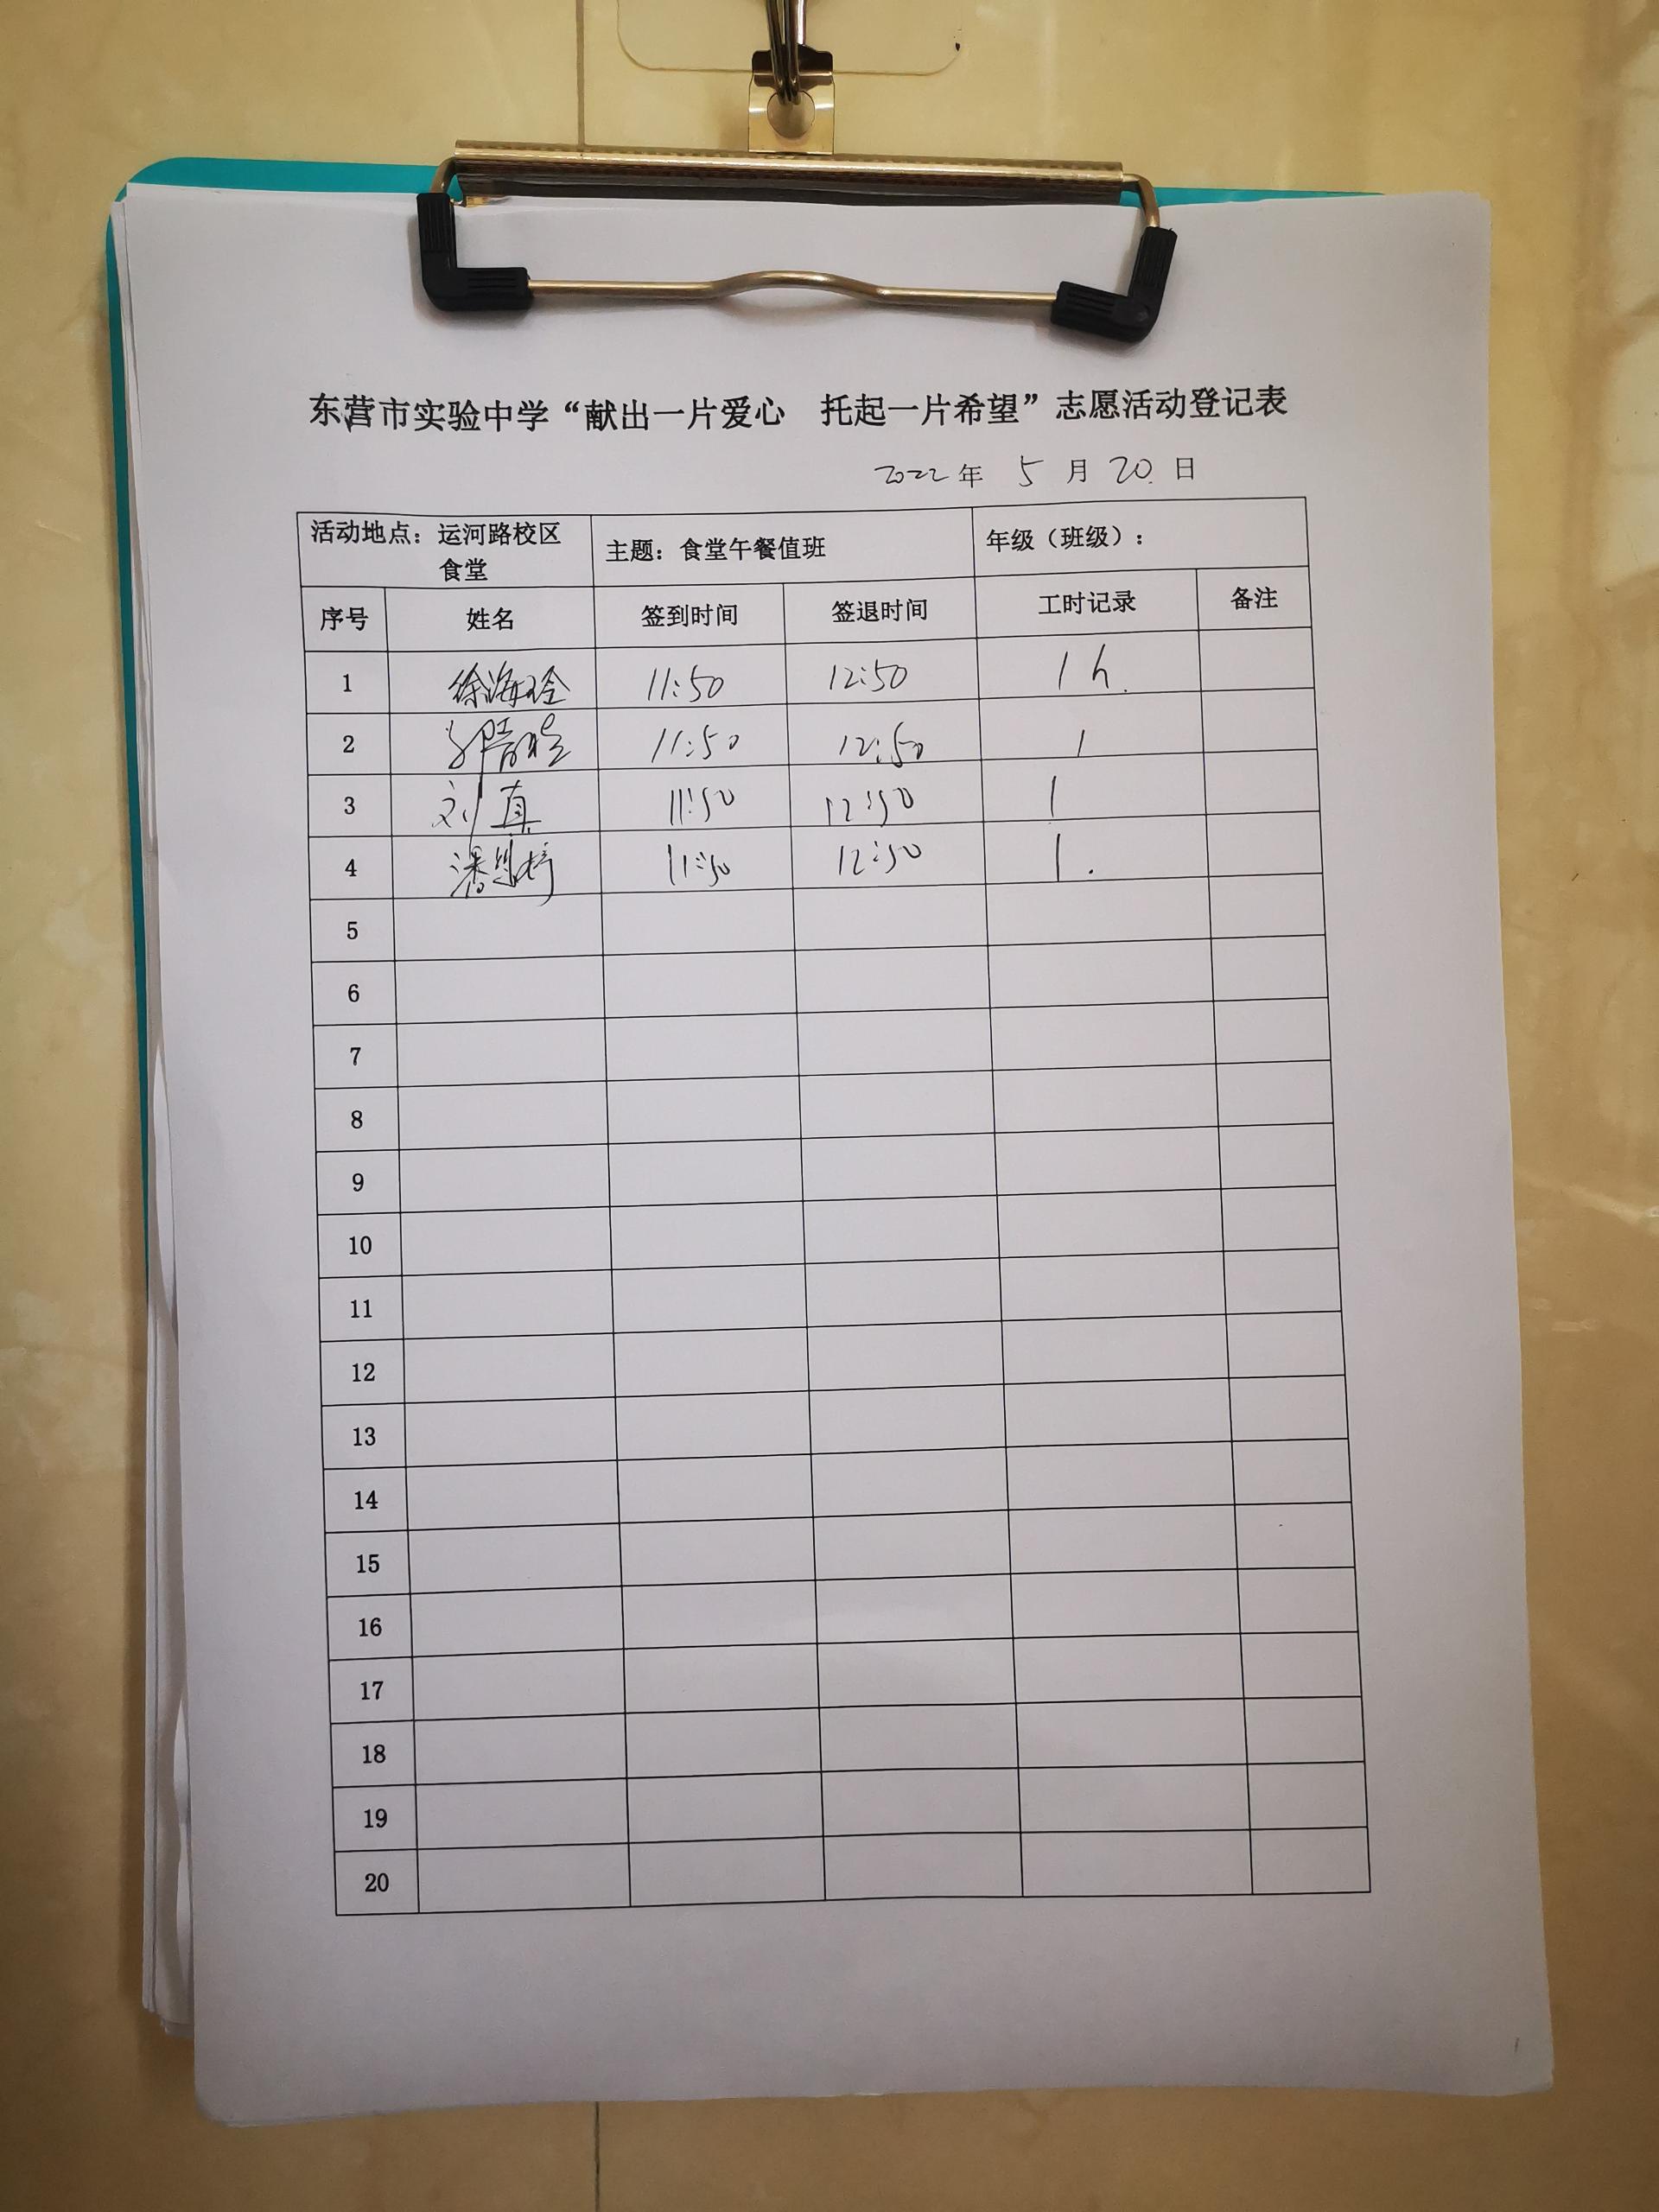 东营市实验中学“献出一片爱心 托起一片希望”志愿活动登记表
2022年 5 月 20 日
活动地点：运河路校区 主题：食堂午餐值班 年级（班级）：
食堂
序号 姓名 签到时间 签退时间 工时记录 备注
1 徐海玲 11:50 12:50 1h.
2 11:50 12:50 1
3 刘真 11:50 12:50 1
4 潘 11:50 12:50 1.
5
6
7
8
9
10
11
12
13
14
15
16
17
18
19
20